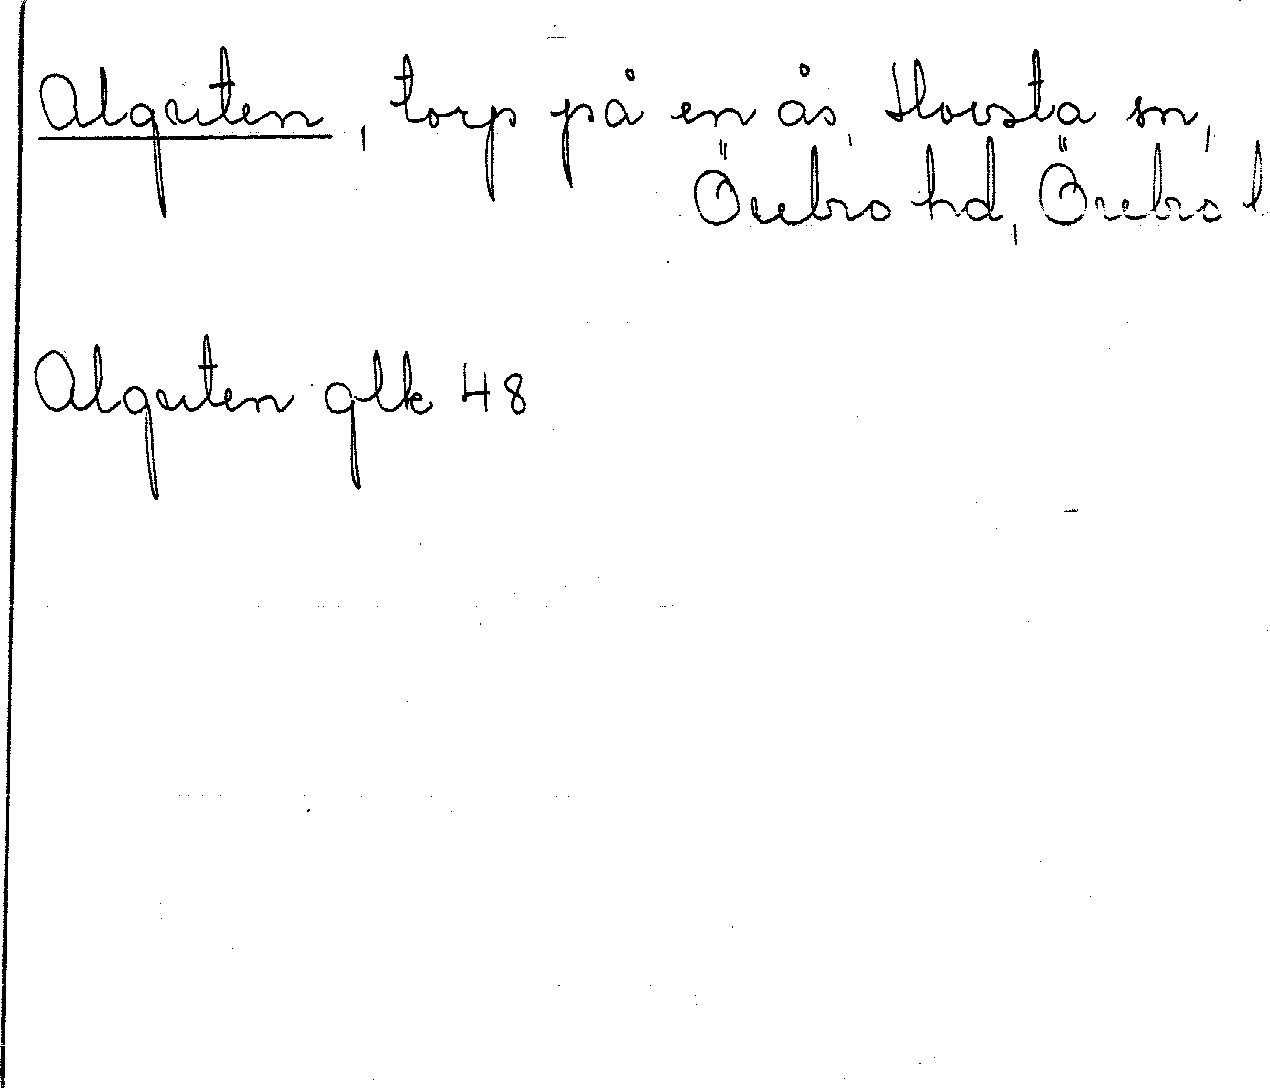 Alguten, torp på en ås, Hovsta sn,
Örebro hd, Örebro l
Alguten glk 48